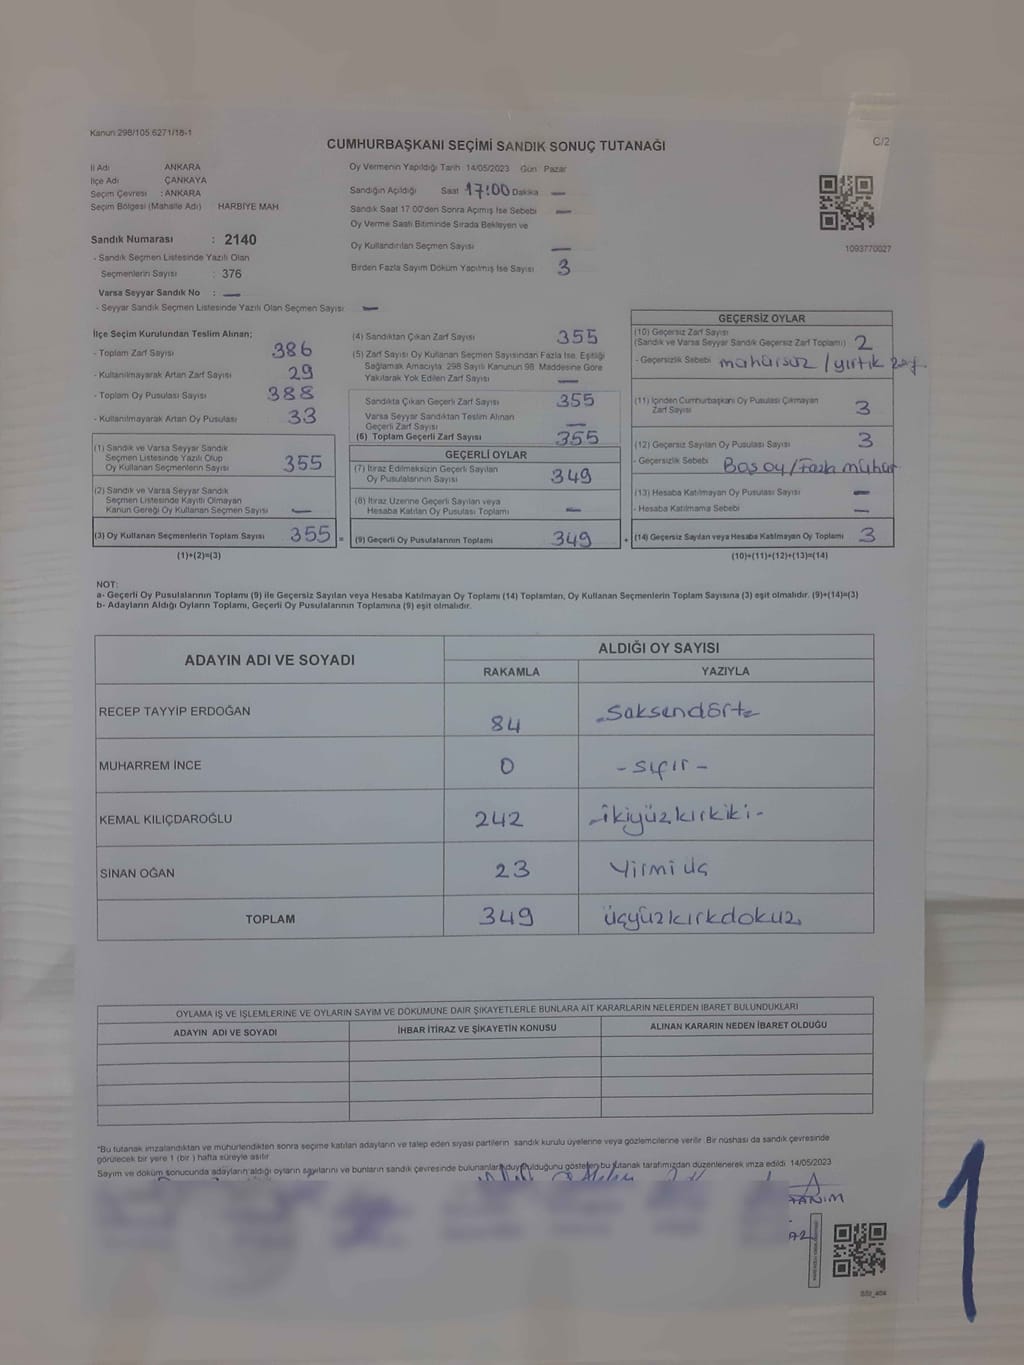 Kanun 298/105 6271/18-1
CUMHURBAŞKANI SEÇİMİ SANDIK SONUÇ TUTANAĞI
C/2
İl Adı ANKARA
İlçe Adı ÇANKAYA
Seçim Çevresi : ANKARA
Seçim Bölgesi (Mahalle Adı) HARBİYE MAH
Sandık Numarası : 2140
- Sandık Seçmen Listesinde Yazılı Olan
Seçmenlerin Sayısı : 376
Varsa Seyyar Sandık No : —
- Seyyar Sandık Seçmen Listesinde Yazılı Olan Seçmen Sayısı —
Oy Vermenin Yapıldığı Tarih 14/05/2023 Gün Pazar
Sandığın Açıldığı Saat 17:00 Dakika —
Sandık Saat 17 00'den Sonra Açımış İse Sebebi —
Oy Verme Saati Bitiminde Sırada Bekleyen ve
Oy Kullandırılan Seçmen Sayısı —
Birden Fazla Sayım Döküm Yapılmış İse Sayısı 3
1093770027
İlçe Seçim Kurulundan Teslim Alınan;
- Toplam Zarf Sayısı 386
- Kullanılmayarak Artan Zarf Sayısı 29
- Toplam Oy Pusulası Sayısı 388
- Kullanılmayarak Artan Oy Pusulası 33
(1) Sandık ve Varsa Seyyar Sandık
Seçmen Listesinde Yazılı Olup
Oy Kullanan Seçmenlerin Sayısı 355
(2) Sandık ve Varsa Seyyar Sandık
Seçmen Listesinde Kayıtlı Olmayan
Kanun Gereği Oy Kullanan Seçmen Sayısı —
(3) Oy Kullanan Seçmenlerin Toplam Sayısı 355 =
(1)+(2)=(3)
(4) Sandıktan Çıkan Zarf Sayısı 355
(5) Zarf Sayısı Oy Kullanan Seçmen Sayısından Fazla İse, Eşitliği
Sağlamak Amacıyla, 298 Sayılı Kanunun 98. Maddesine Göre
Yakılarak Yok Edilen Zarf Sayısı —
Sandıkta Çıkan Geçerli Zarf Sayısı 355
Varsa Seyyar Sandıktan Teslim Alınan
Geçerli Zarf Sayısı —
(6) Toplam Geçerli Zarf Sayısı 355
GEÇERLİ OYLAR
(7) İtiraz Edilmeksizin Geçerli Sayılan
Oy Pusulalarının Sayısı 349
(8) İtiraz Üzerine Geçerli Sayılan veya
Hesaba Katılan Oy Pusulası Toplamı —
(9) Geçerli Oy Pusulalarının Toplamı 349 +
GEÇERSİZ OYLAR
(10) Geçersiz Zarf Sayısı
(Sandık ve Varsa Seyyar Sandık Geçersiz Zarf Toplamı) 2
- Geçersizlik Sebebi mühürsüz / yırtık zarf
(11) İçinden Cumhurbaşkanı Oy Pusulası Çıkmayan
Zarf Sayısı 3
(12) Geçersiz Sayılan Oy Pusulası Sayısı 3
- Geçersizlik Sebebi Boş oy / Fazla mühür
(13) Hesaba Katılmayan Oy Pusulası Sayısı —
- Hesaba Katılmama Sebebi —
(14) Geçersiz Sayılan veya Hesaba Katılmayan Oy Toplamı 3
(10)+(11)+(12)+(13)=(14)
NOT:
a- Geçerli Oy Pusulalarının Toplamı (9) ile Geçersiz Sayılan veya Hesaba Katılmayan Oy Toplamı (14) Toplamları, Oy Kullanan Seçmenlerin Toplam Sayısına (3) eşit olmalıdır. (9)+(14)=(3)
b- Adayların Aldığı Oyların Toplamı, Geçerli Oy Pusulalarının Toplamına (9) eşit olmalıdır.
ADAYIN ADI VE SOYADI ALDIĞI OY SAYISI
RAKAMLA YAZIYLA
RECEP TAYYİP ERDOĞAN 84 -Saksendört-
MUHARREM İNCE 0 - sıfır -
KEMAL KILIÇDAROĞLU 242 -ikiyüzkırkiki-
SİNAN OĞAN 23 Yirmi üç
TOPLAM 349 üçyüzkırkdokuz
OYLAMA İŞ VE İŞLEMLERİNE VE OYLARIN SAYIM VE DÖKÜMÜNE DAİR ŞİKAYETLERLE BUNLARA AİT KARARLARIN NELERDEN İBARET BULUNDUKLARI
ADAYIN ADI VE SOYADI İHBAR İTİRAZ VE ŞİKAYETİN KONUSU ALINAN KARARIN NEDEN İBARET OLDUĞU
*Bu tutanak imzalandıktan ve mühürlendikten sonra seçime katılan adayların ve talep eden siyasi partilerin sandık kurulu üyelerine veya gözlemcilerine verilir. Bir nüshası da sandık çevresinde
görülecek bir yere 1 (bir ) hafta süreyle asılır
Sayım ve döküm sonucunda adayların aldığı oyların sayılarını ve bunların sandık çevresinde bulunanlara duyurulduğunu gösteren bu tutanak tarafımızdan düzenlenerek imza edildi. 14/05/2023
1